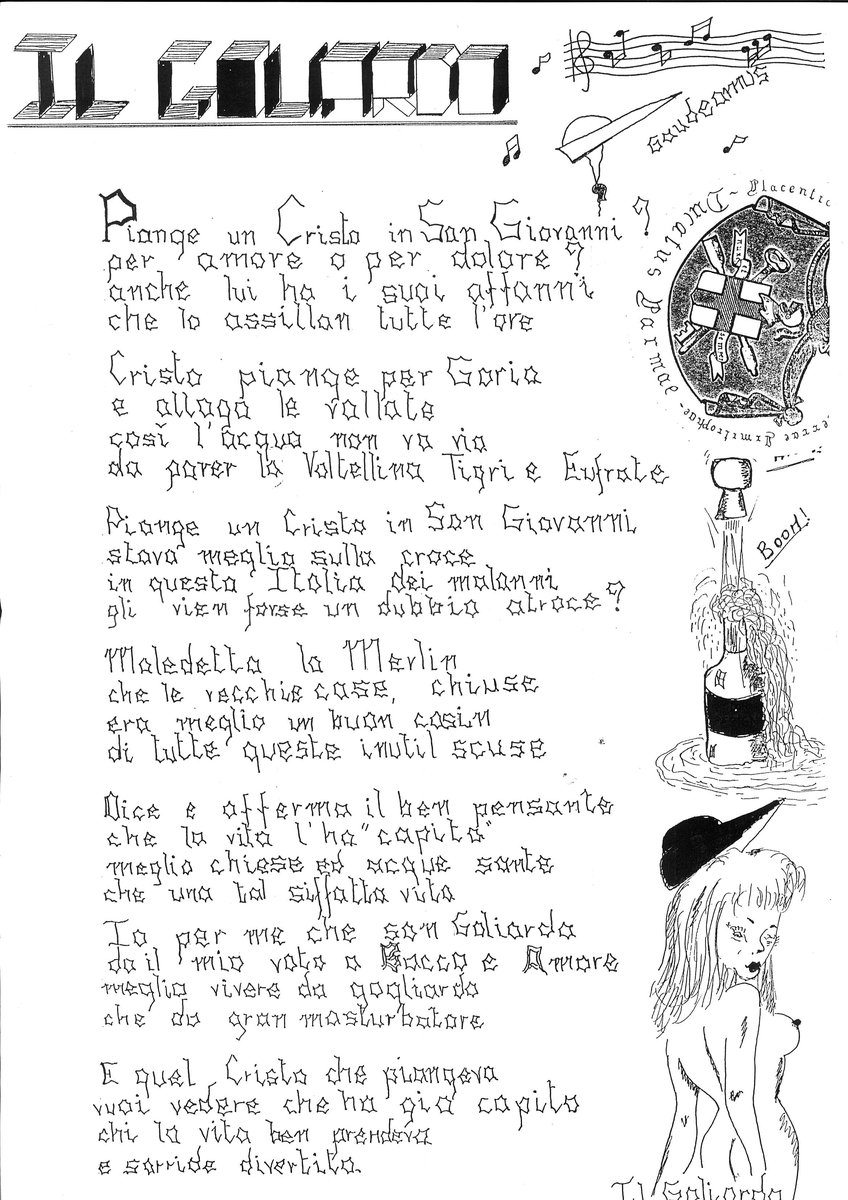 IL GOLIARDO
Gaudeamus
Ducatus Parmae - Placentia
Piange un Cristo in San Giovanni?
per amore o per dolore?
anche lui ha i suoi affanni
che lo assillan tutte l'ore
Cristo piange per Goria
e allaga le vallate
così l'acqua non va via
da parer la Voltellina Tigri e Eufrate
Piange un Cristo in San Giovanni
stava meglio sulla croce
in questa Italia dei malanni
gli vien forse un dubbio atroce?
BOOM!
Maledetta la Merlin
che le vecchie case, chiuse
era meglio un buon casin
di tutte queste inutil scuse
Dice e afferma il ben pensante
che la vita l'ha "capita"
meglio chiese ed acque sante
che una tal siffatta vita
Io per me che son Goliarda
do il mio voto a Bacco e Amore
meglio vivere da gagliardo
che da gran masturbatore
E quel Cristo che piangeva
vuoi vedere che ha già capito
chi la vita ben prendeva
e sorride divertito.
Il Goliardo